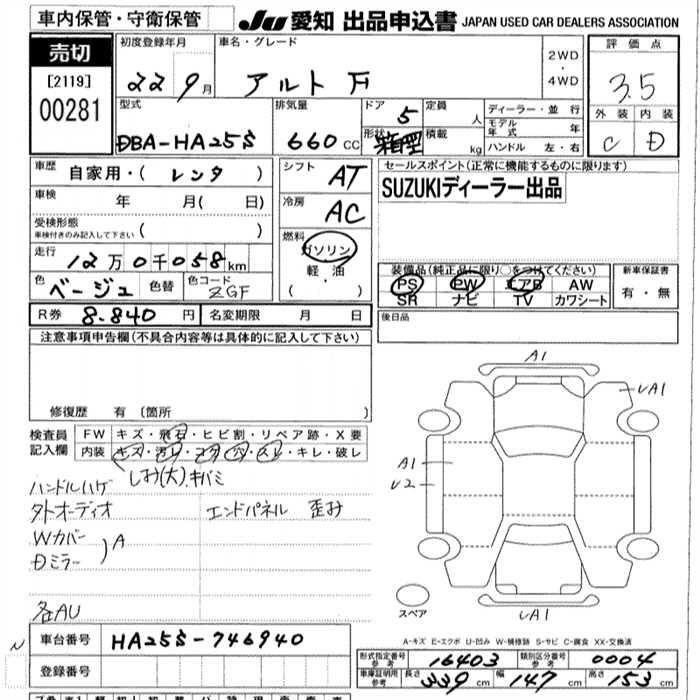 車内保管・守衛保管
JU 愛知 出品申込書 JAPAN USED CAR DEALERS ASSOCIATION
売切
[2119]
00281
初度登録年月
22 9月
車名・グレード
アルト F
2WD
・
4WD
評価点
3.5
外装 内装
C D
型式
DBA-HA25S
排気量
660 CC
ドア 5
形状 箱型
定員 人
積載 kg
ディーラー・並行
モデル年式 年
ハンドル 左・右
車歴 自家用・( レンタ )
車検 年 月( 日)
受検形態
車検付きのみ記入して下さい ( )
走行 12万0千058km
色 ベージュ 色替 色コード ZGF
シフト AT
冷房 AC
燃料
ガソリン
軽・油
( )
セールスポイント(正常に機能するものに限ります)
SUZUKIディーラー出品
装備品(純正品に限り○をつけてください)
PS PW エアB AW
SR ナビ TV カワシート
新車保証書
有・無
R券 8.840 円 名変期限 月 日
後日品
注意事項申告欄(不具合内容等は具体的に記入して下さい)
修復歴 有 (箇所 )
検査員記入欄
FW キズ・飛石・ヒビ割・リペア跡・X要
内装 キズ・汚レ・コゲ・穴・スレ・キレ・破レ
しみ(大)、キバミ
ハンドルハゲ
外オーディオ エンドパネル 歪み
Wカバー
Dミラー
)A
各AU
A1
UA1
A1
U2
UA1
スペア
A-キズ E-エクボ U-凹み W-補修跡 S-サビ C-腐食 XX-交換済
N
車台番号 HA25S-746940
登録番号
形式指定番号 参考 16403 類別区分番号 参考 0004
車庫証明用 参考 長さ 339 cm 幅 147 cm 高さ 153 cm